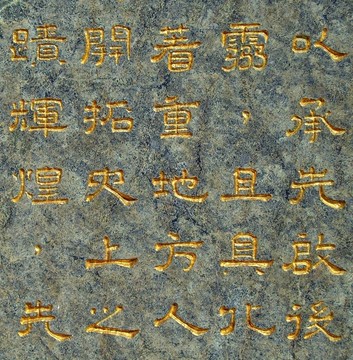 以承先啟後
靈，且具化
著重地方人
開拓史上之
蹟輝煌，先